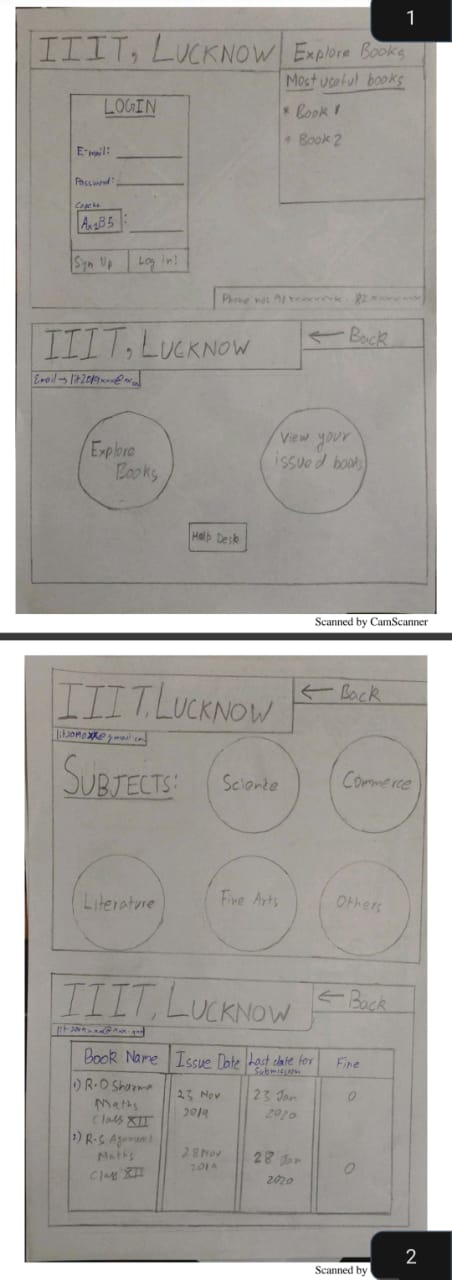 1
IIIT, LUCKNOW
Explore Books
Most useful books
* Book 1
* Book 2
LOGIN
E-mail:
Password:
Capcha
:
Sign Up
Log in!
Phone no:
IIIT, LUCKNOW
← Back
Email →
Explore
Books
View your
issued books
Help Desk
Scanned by CamScanner
IIIT, LUCKNOW
← Back
SUBJECTS:
Science
Commerce
Literature
Fine Arts
Others
IIIT, LUCKNOW
← Back
Book Name
Issue Date
Last date for
Submission
Fine
1) R.D Sharma
Maths
Class XII
23 Nov
2019
23 Jan
2020
0
2) R.S
Maths
Class XII
28 Nov
2019
28 Jan
2020
0
Scanned by
2